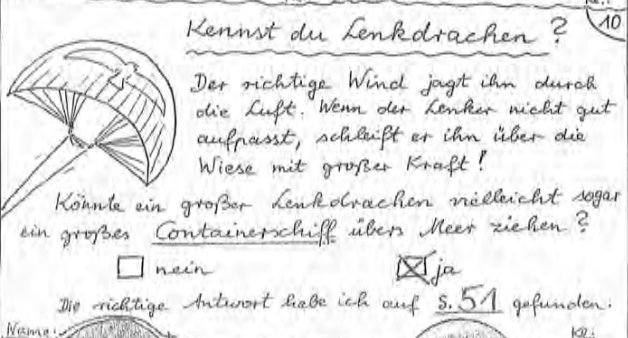 Kl.:
10
Kennst du Lenkdrachen?
Der richtige Wind jagt ihn durch
die Luft. Wenn der Lenker nicht gut
aufpasst, schleift er ihn über die
Wiese mit großer Kraft!
Könnte ein großer Lenkdrachen vielleicht sogar
ein großes Containerschiff übers Meer ziehen?
nein ja
Die richtige Antwort habe ich auf S. 51 gefunden.
Name: Kl.: